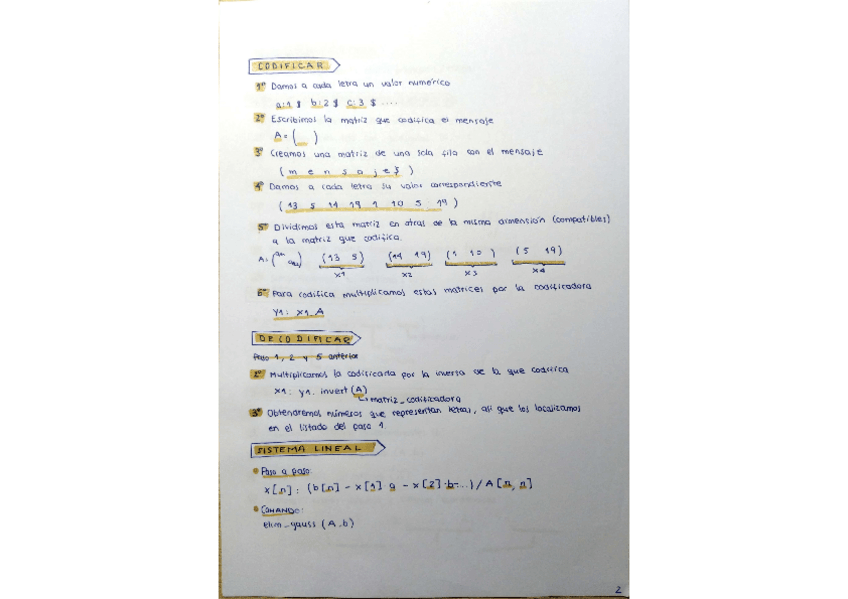 CODIFICAR
1º Damos a cada letra un valor numérico
a:1 $ b:2 $ c:3 $ ....
2º Escribimos la matriz que codifica el mensaje
A = ( )
3º Creamos una matriz de una sola fila con el mensaje
( m e n s a j e $ )
4º Damos a cada letra su valor correspondiente
( 13 5 14 19 1 10 5 19 )
5º Dividimos esta matriz en otras de la misma dimensión (compatibles)
a la matriz que codifica.
A: (13 5) (14 19) (1 10 ) (5 19)
x1 x2 x3 x4
6º Para codifica multiplicamos estas matrices por la codificadora
y1: x1.A
DECODIFICAR
Paso 1, 2 y 5 anterior
2º Multiplicamos la codificada por la inversa de la que codifica
x1: y1. invert (A)
matriz_codificadora
3º Obtendremos números que representan letras, así que los localizamos
en el listado del paso 1.
SISTEMA LINEAL
Paso a paso:
x[n]: (b[n] - x[1]·a - x[2]·b-...) / A[n, n]
COMANDO:
elim_gauss (A,b)
2